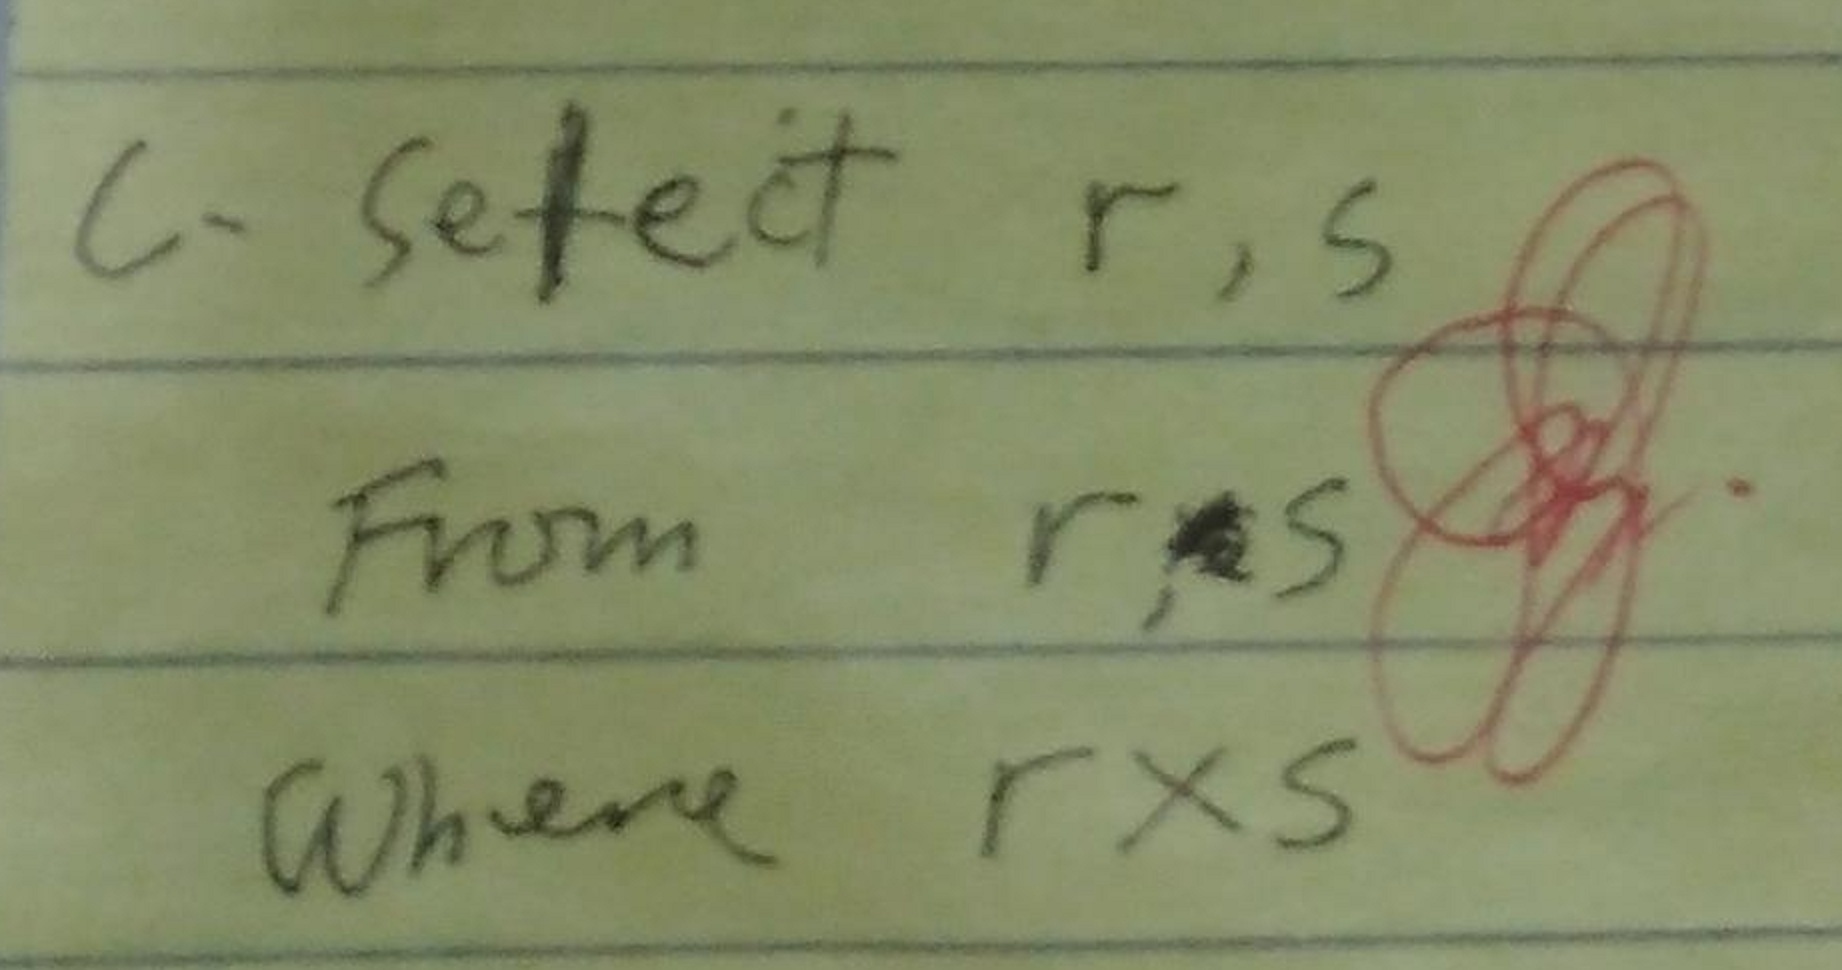 C- Select r, s
From r, s
Where r x s